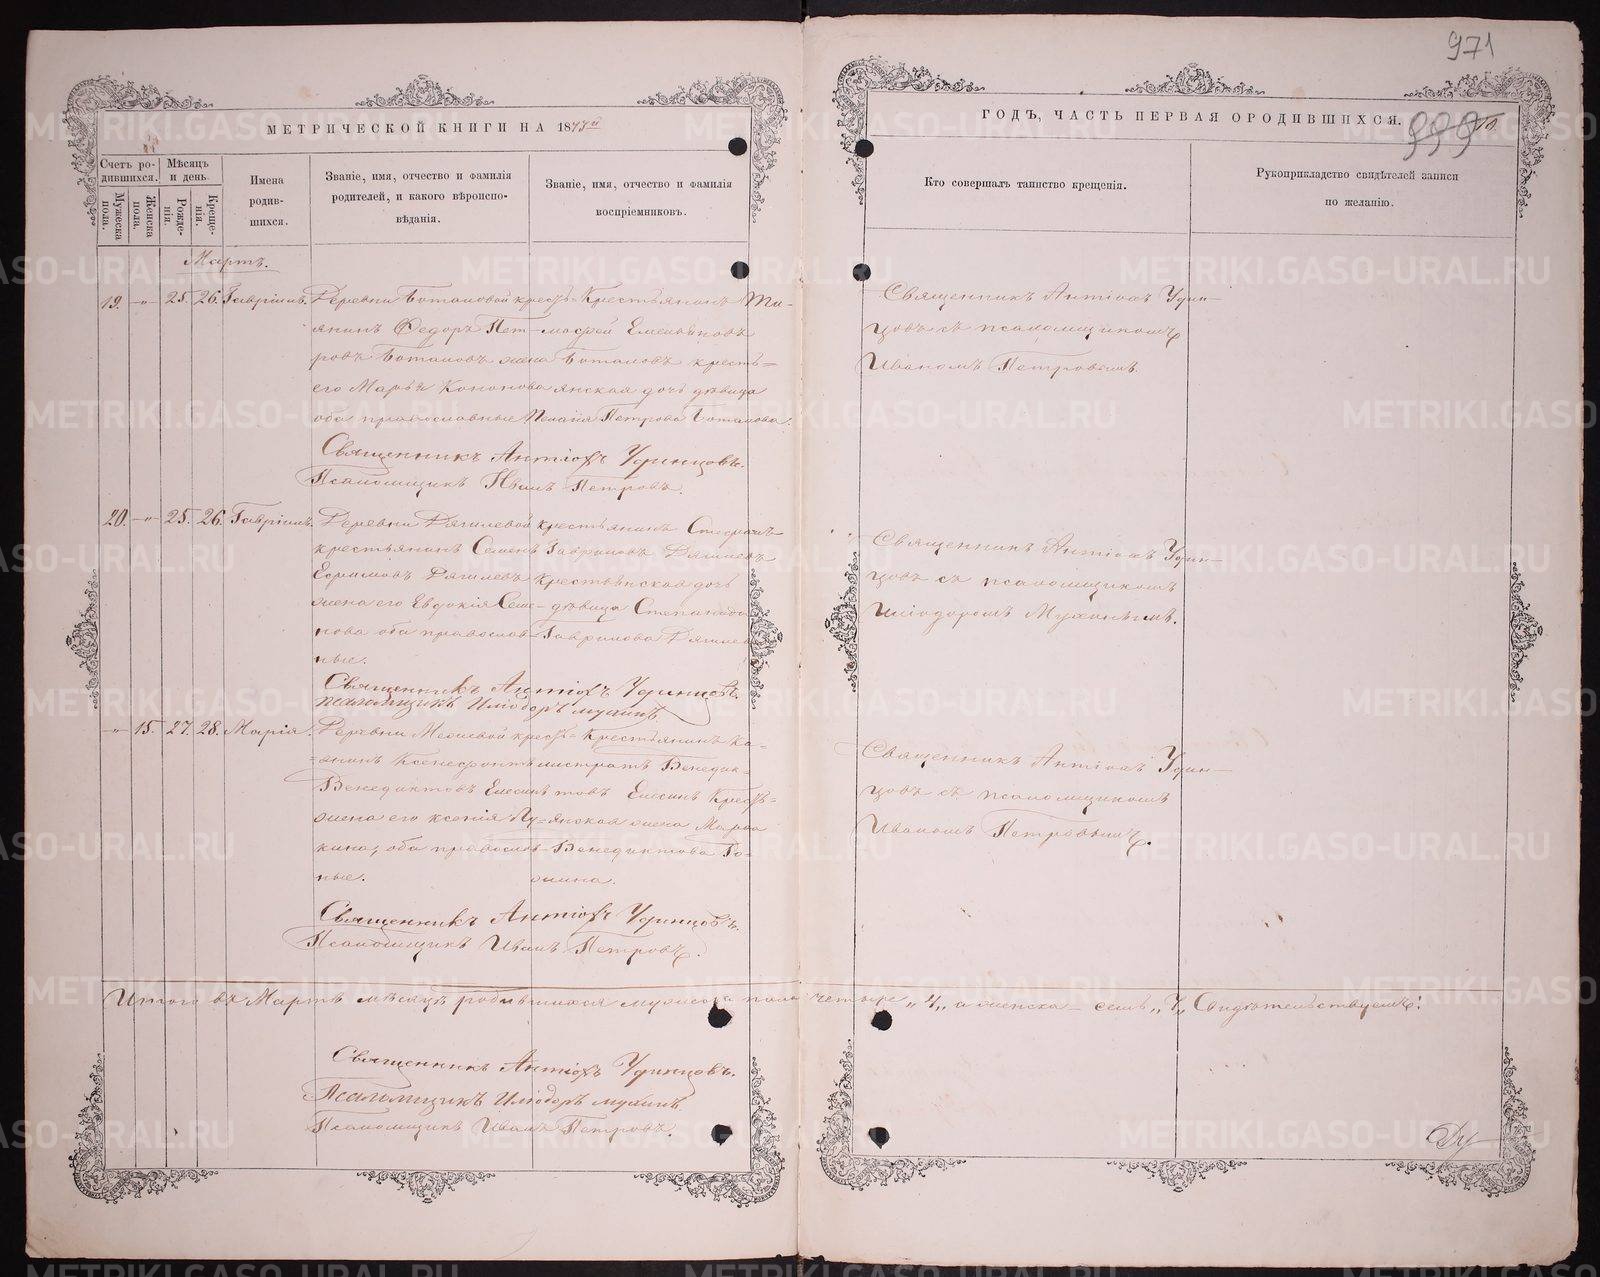 971
МЕТРИЧЕСКОЙ КНИГИ НА 187
ГОДЪ, ЧАСТЬ ПЕРВАЯ О РОДИВШИХСЯ.
999
Счетъ ро-
дившихся.
Мѣсяцъ
и день.
Мужеска
пола.
Женска
пола.
Рожде-
нія.
Креще-
нія.
Имена
родив-
шихся.
Званіе, имя, отчество и фамилія
родителей, и какого вѣроиспо-
вѣданія.
Званіе, имя, отчество и фамилія
воспріемниковъ.
Кто совершалъ таинство крещенія.
Рукоприкладство свидѣтелей записи
по желанію.
Мартъ.
19. -"- 25. 26. Гавріилъ.
Деревни Боталовой крестъ-
янинъ Федоръ Пет-
ровъ Боталовъ жена
его Марья Кононова
оба православные
Крестьянинъ Ти-
мофей Емельяновъ
Боталовъ кресть-
янская дочь дѣвица
Пелагія Петрова Боталова.
Священникъ Антіохъ Удинцовъ.
Псаломщикъ Иванъ Петровъ.
Священникъ Антіохъ Удин-
цовъ съ псаломщикомъ
Иваномъ Петровымъ.
20. -"- 25. 26. Гавріилъ.
Деревни Дягилевой
крестьянинъ Семенъ
Ефимовъ Дягилевъ
жена его Евдокія Семе-
нова оба православ-
ные.
крестьянинъ
Гавриловъ Дягилевъ
Крестьянская дочь
дѣвица Степанида
Гаврилова Дягилева
Священникъ Антіохъ Удинцовъ.
псаломщикъ Иліодоръ Мухинъ
Священникъ Антіохъ Удин-
цовъ съ псаломщикомъ
Иліодоромъ Мухинымъ.
-"- 15. 27. 28. Марія.
Деревни крестъ-
янинъ Ксенофонтъ
Венедиктовъ
жена его Ксенія Лу-
кина, оба православ-
ные.
Крестьянинъ Ка-
листратъ Венедик-
товъ Кресть-
янская жена Марѳа
Венедиктова
Священникъ Антіохъ Удинцовъ.
Псаломщикъ Иванъ Петровъ.
Священникъ Антіохъ Удин-
цовъ съ псаломщикомъ
Иваномъ Петровымъ.
Итого въ Мартѣ мѣсяцѣ родившихся мужеска пола четыре „4„ а женска - семь „7„ Свидѣтельствуемъ:
Священникъ Антіохъ Удинцовъ.
Псаломщикъ Иліодоръ Мухинъ.
Псаломщикъ Иванъ Петровъ.
METRIKI.GASO-URAL.RU